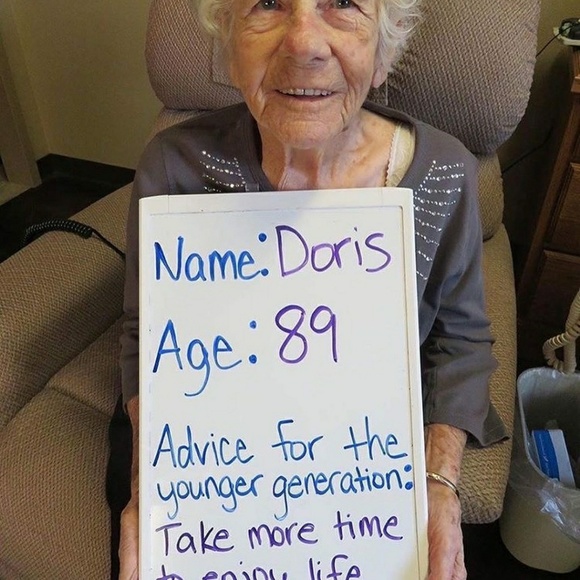 Name: Doris
Age: 89
Advice for the
younger generation:
Take more time
to enjoy life